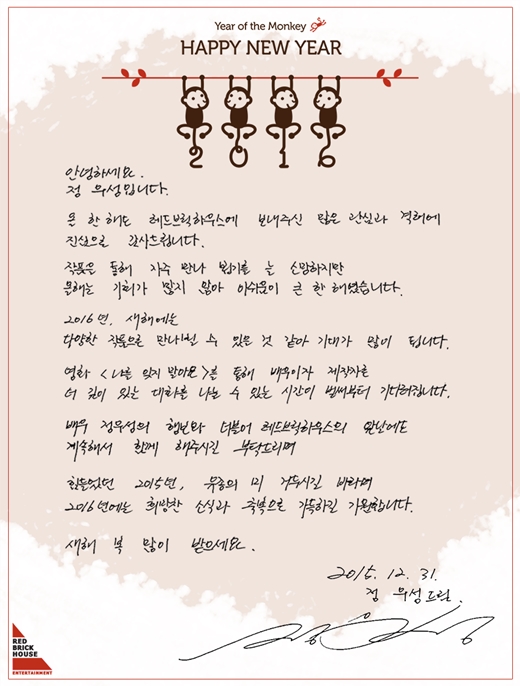 Year of the Monkey
HAPPY NEW YEAR
2016
안녕하세요.
정우성입니다.
올 한 해도 레드브릭하우스에 보내주신 많은 관심과 격려에
진심으로 감사드립니다.
작품을 통해 자주 만나 뵙기를 늘 소망하지만
올해는 기회가 많지 않아 아쉬움이 큰 한 해였습니다.
2016년, 새해에는
다양한 작품으로 만나뵐 수 있을 것 같아 기대가 많이 됩니다.
영화 <나를 잊지 말아요>를 통해 배우이자 제작자로
더 깊이 있는 대화를 나눌 수 있는 시간이 벌써부터 기다려집니다.
배우 정우성의 행보와 더불어 레드브릭하우스의 앞날에도
계속해서 함께 해주시길 부탁드리며
힘들었던 2015년, 유종의 미 거두시길 바라며
2016년에는 희망찬 소식과 축복으로 가득하길 기원합니다.
새해 복 많이 받으세요.
2015. 12. 31.
정우성 드림.
RED
BRICK
HOUSE
ENTERTAINMENT